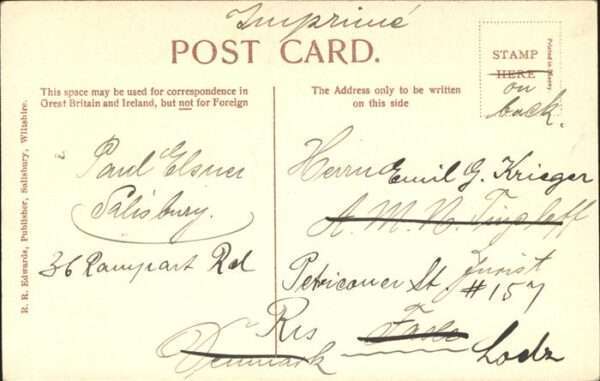 Imprimé
POST CARD.
STAMP
HERE
on
back.
Printed in
This space may be used for correspondence in
Great Britain and Ireland, but not for Foreign
The Address only to be written
on this side
R. R. Edwards, Publisher, Salisbury, Wiltshire.
Paul Elsner
Salisbury.
36 Rampart Rd
Herrn Emil G. Krieger
A. M. N. Tingleff
Petricower St. Jurist
#157
Rus
Denmark
Lodz